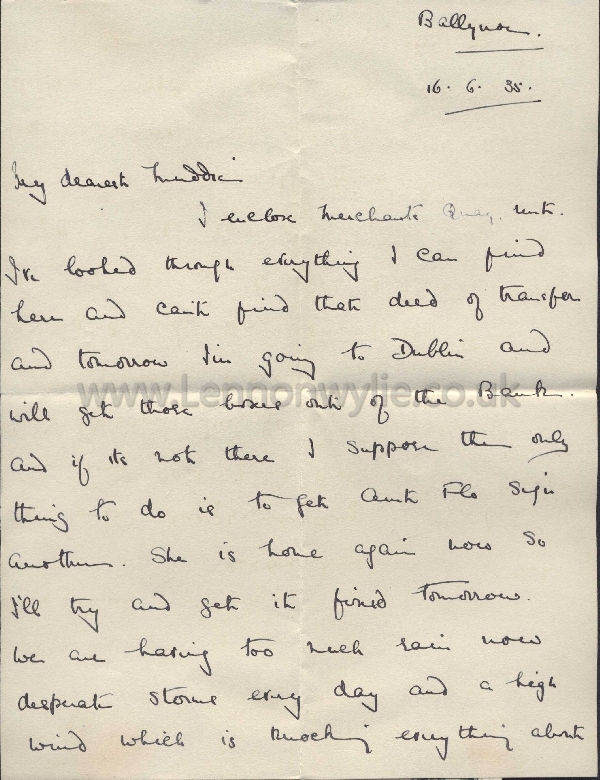 Ballynoe.
16. 6. 35.
My dearest Muddie
I enclose Merchants Quay. rents.
I've looked through everything I can find
here and can't find that deed of transfer
and tomorrow I'm going to Dublin and
www.Lennonwylie.co.uk
will get those boxes out of the Bank.
and if its not there I suppose the only
thing to do is to get Aunt Flo sign
another. She is home again now so
I'll try and get it fixed tomorrow.
We are having too much rain now
desperate storms every day and a high
wind which is knocking everything about